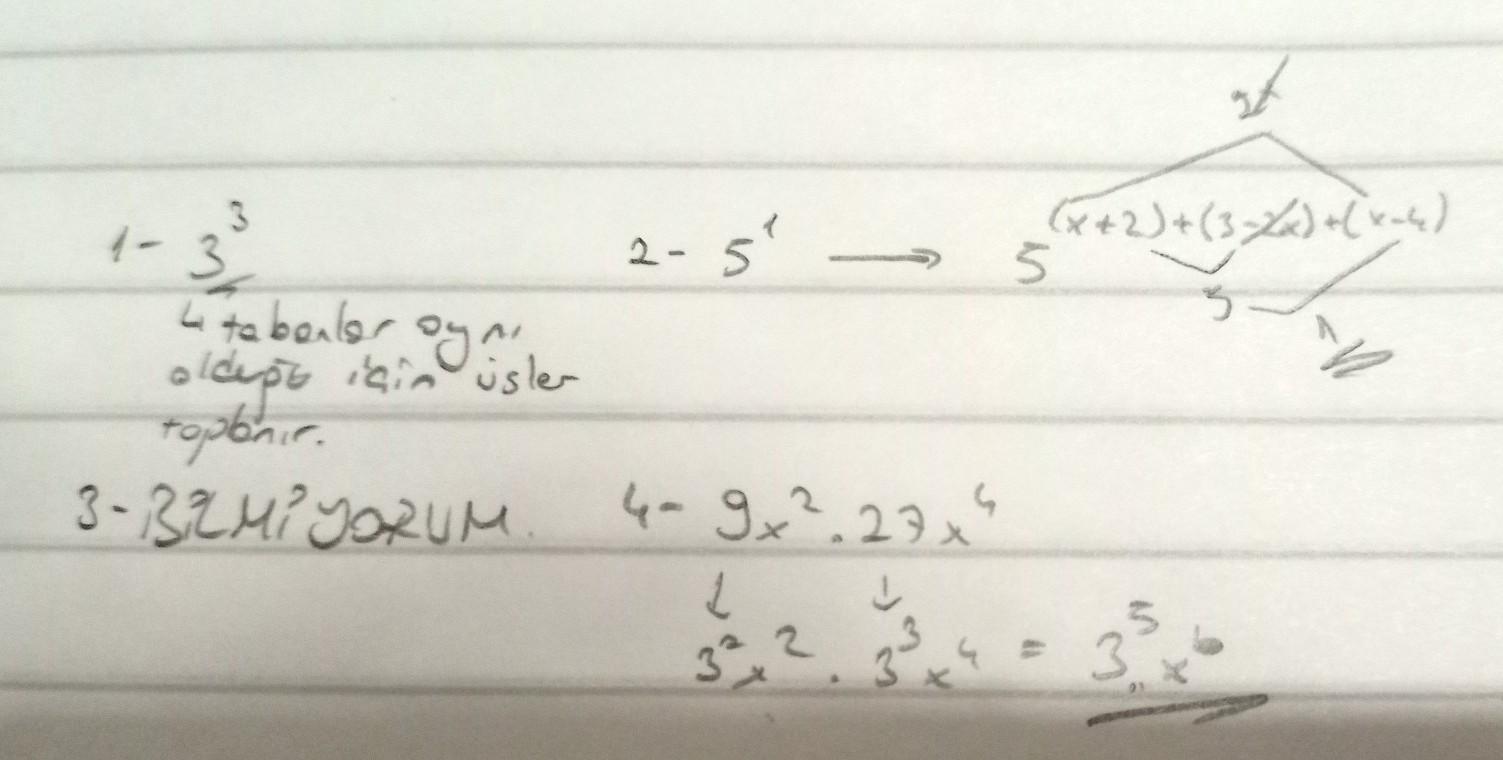 1- 3³
↳ tabanlar aynı
olduğu için üsler
toplanır.
2- 5¹ → 5^(x+2)+(3-2x)+(x-4)
2x
5
1
3- BİLMİYORUM.
4- 9x² . 27x⁴
↓ ↓
3²x² . 3³x⁴ = 3⁵.x⁶